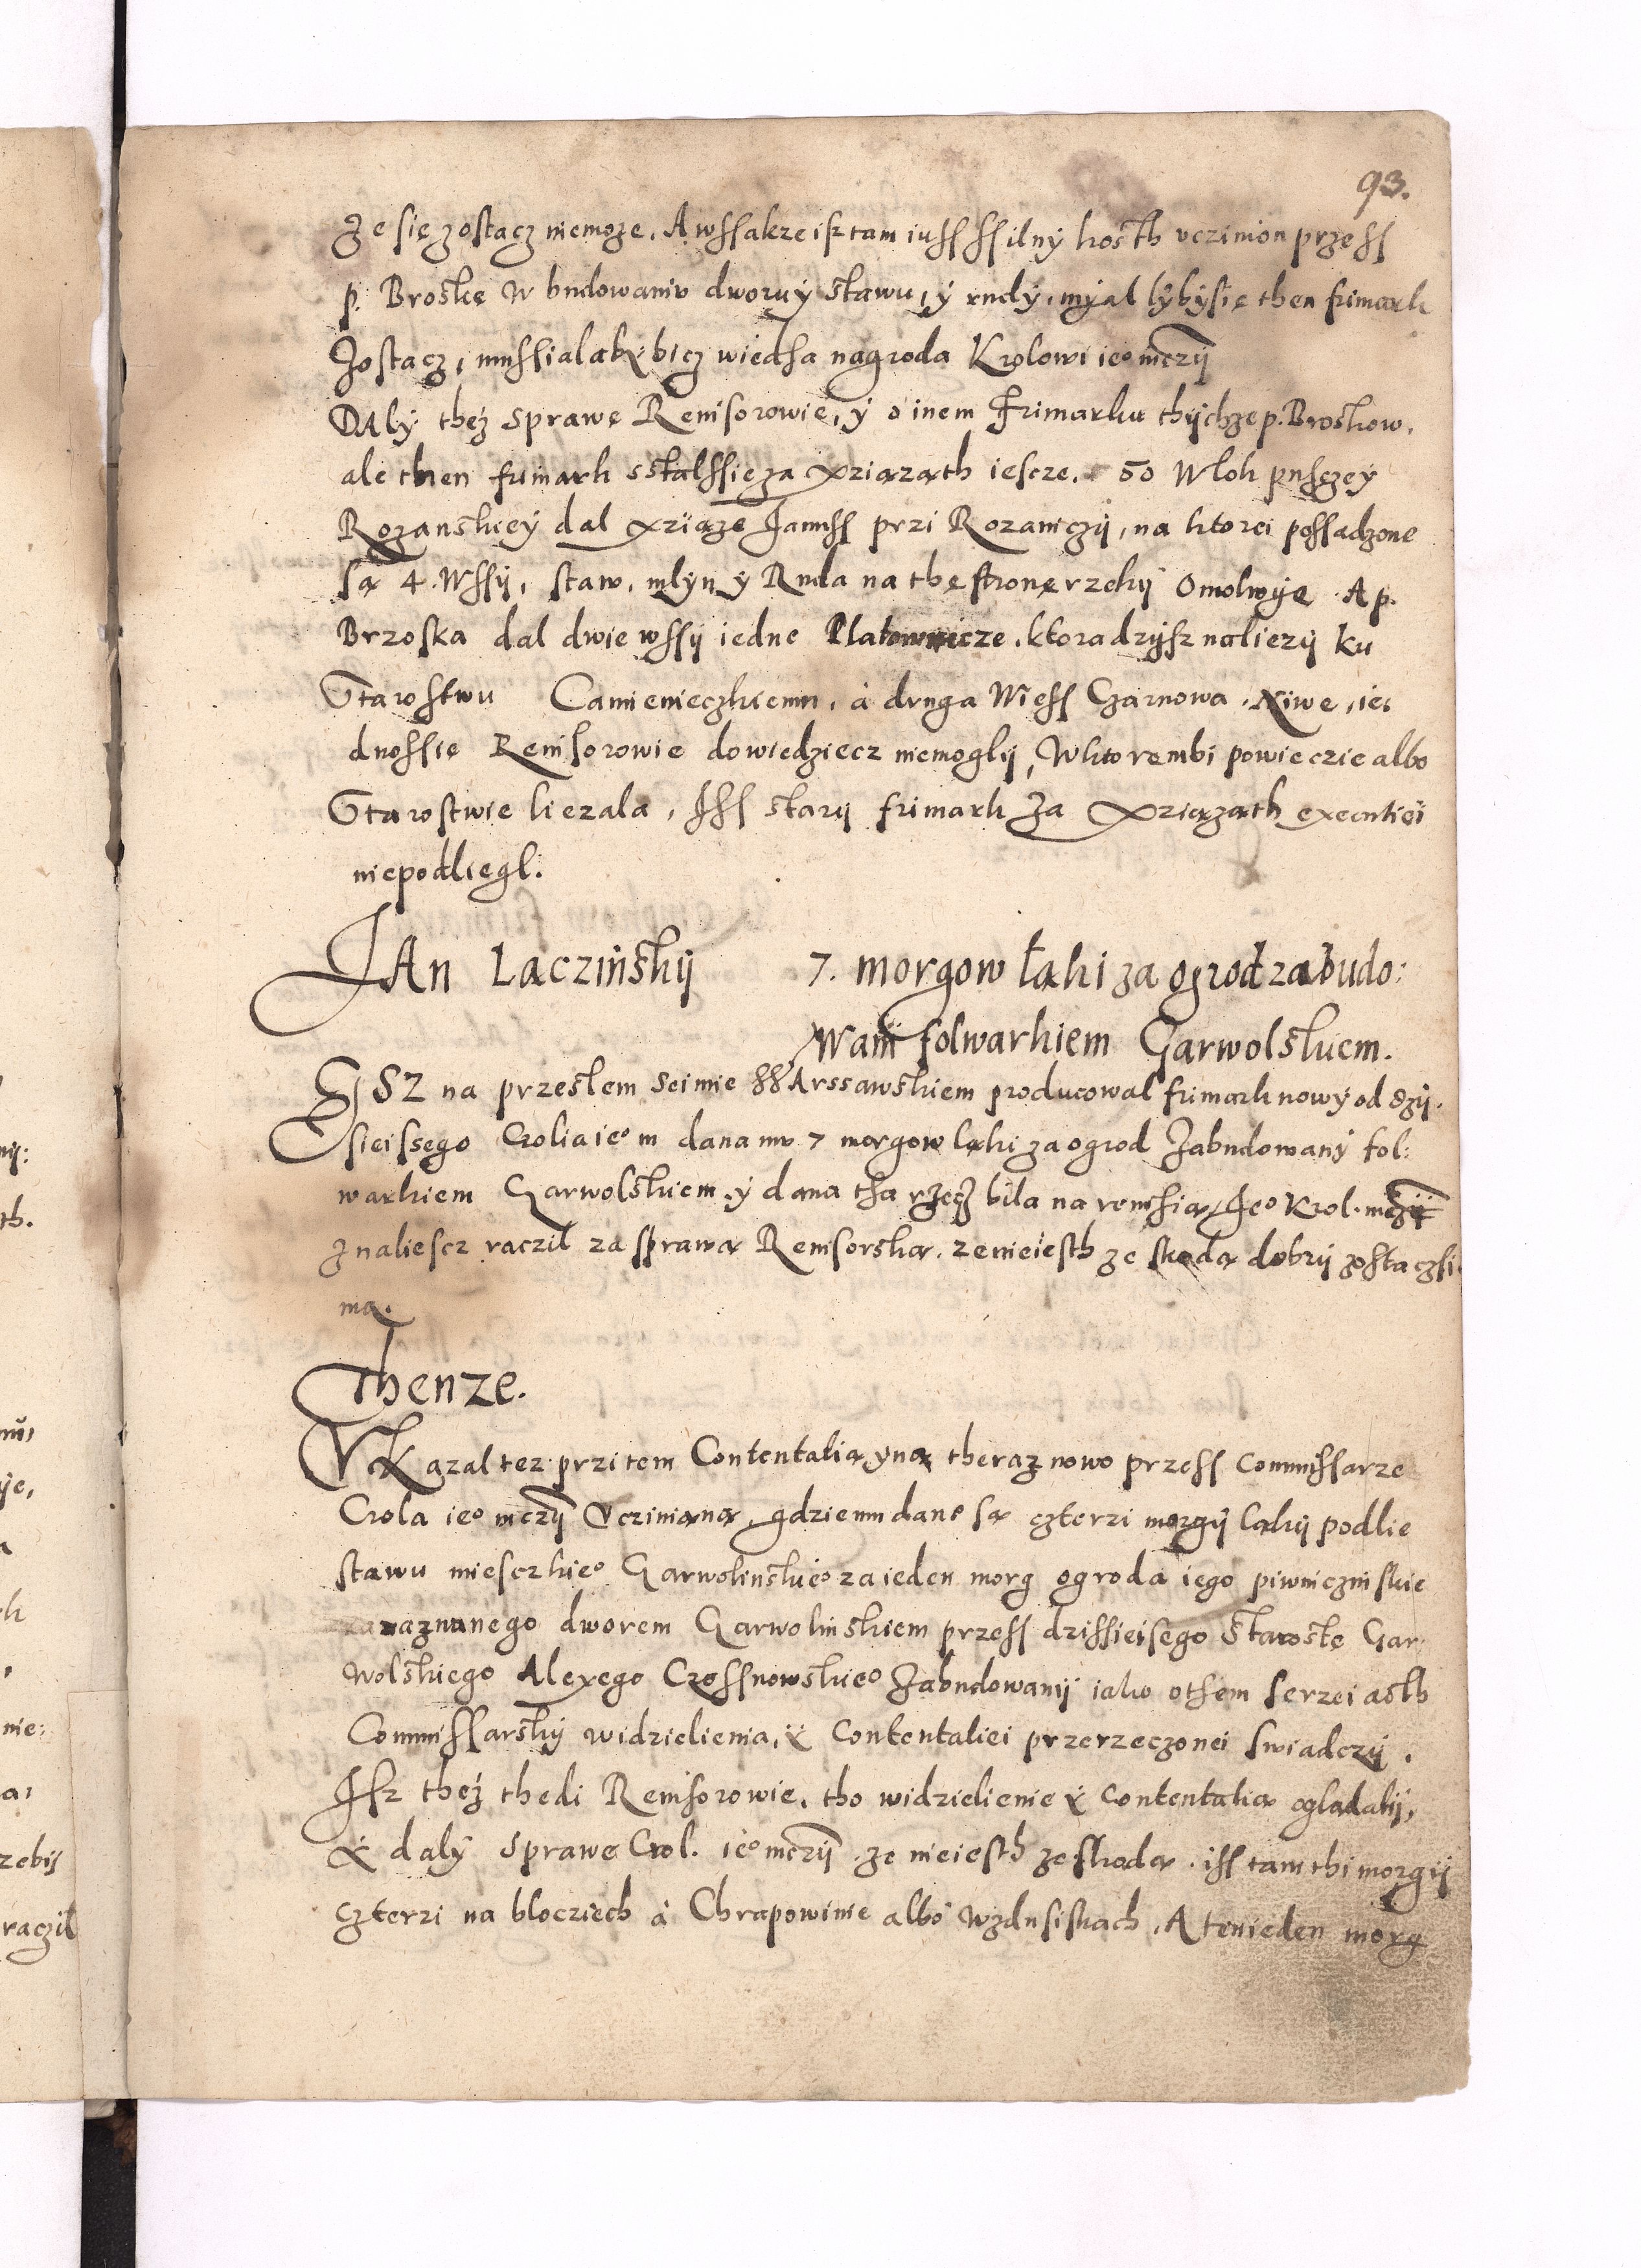 93.
Że się zostacz niemoze. A wssakze isz tam iuss ssilny kosth vczinion przess
p. Broskę W budowaniv dworu y stawu, y rudy, myal lybysię then frimark
Zostacz, mussialaby bicz wiethsa nagroda Krolowi ieº mczÿ
DAly theż sprawę Reuisorowie, y o inem Frimarku thÿchze p. Broskow.
ale then frimark sstalssie za xziąząth iescze. 50 Wlok pusczey
Rozanskiey dal xziąze Janussz przi Rozaniczÿ, na ktorei possadzone
są 4. Wssÿ, staw, mlyn y Ruda na thę stronę rzekÿ Omolwye. A p.
Brzoska dal dwie wssÿ iedne Platownicze. ktora dzysz naliezÿ ku
Starostwu Camienieczkiemu, à druga Wiess Czarnowa Niwe, iei
dnossie Reuisorowie dowiedziecz niemoglÿ, Wktorembi powieczie albo
Starostwie liezala, Iss starÿ frimark Za xziązath executiei
niepodliegl.
JAn Laczinskÿ 7. morgow łąki za ogrod zabudo:
wanÿ folwarkiem Garwolskiem.
ISZ na przeslem Seimie WArssawskiem producowal frimark nowy od dzÿ.
sieissego Crolia ieº m dana mv 7 morgow ląki za ogrod Zabudowany fol:
warkiem Garwolskiem. y dana tha rzecz bila na reuisią, Ieº Krol. mczÿ
znaliescz raczil za sprawą Reuisorską. ze nieiesth ze skodą dobrÿ zostacz si
ma.
Thenze.
VKazal tez przitem Contentalią yną theraz nowo przess Commissarze
Crola ieº mczÿ Vczinianą, gdziemu dane są czterzi morgÿ ląkÿ podlie
stawu miesczkieº Garwolinskieº za ieden morg ogroda iego piwniczniskie
dworem Garwolinskiem przess dzissieisego Staroste Gar:
Wolskiego Alexego Crossnowskieº Zabudowanÿ iako othem serzei acth
Commissarsky widzielienia, y Contentaliei przerzeczonei swiadczÿ.
Isz theż thedi Reuisorowie, tho widzielienie y Contentalią ogladalÿ,
y daly sprawe Crol. ieº mczÿ ze nieiesth ze skodą. iss tam thi morgÿ
czterzi na blocziech à Chrapowinie albo Wzdusiskach, A ten ieden morg